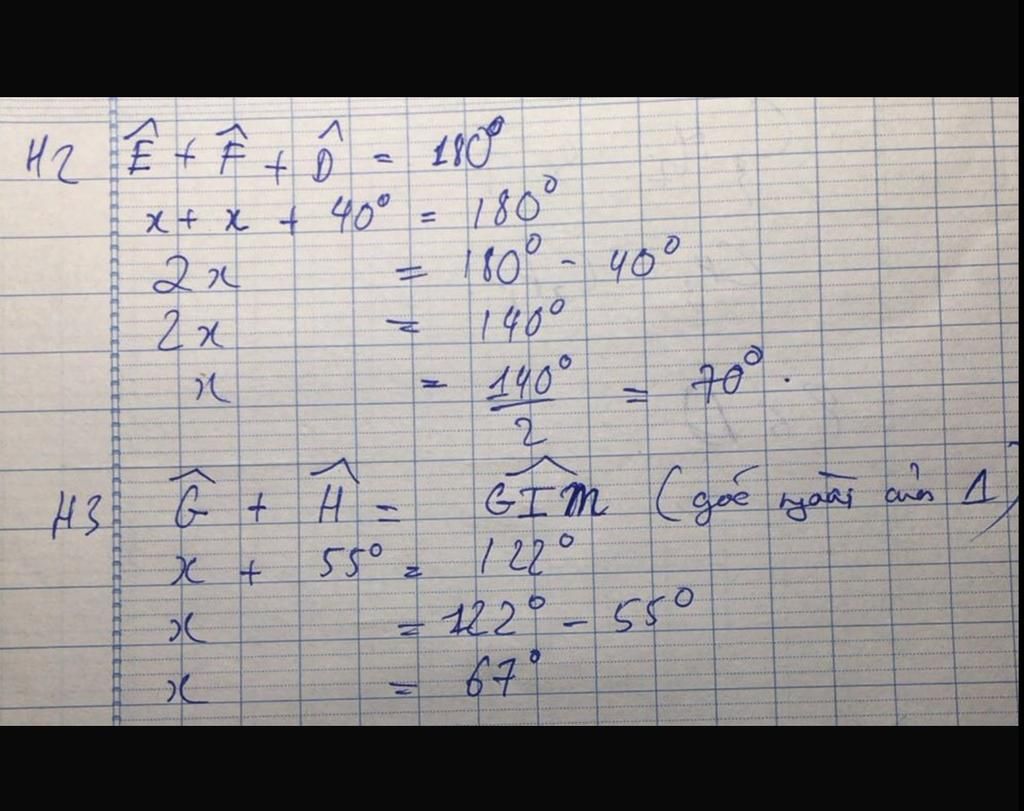 H2 Ê + F̂ + D̂ = 180°
x + x + 40° = 180°
2x = 180° - 40°
2x = 140°
x = 140°/2 = 70°.
H3 Ĝ + Ĥ = GIM̂ (góc ngoài của 1)
x + 55° = 122°
x = 122° - 55°
x = 67°